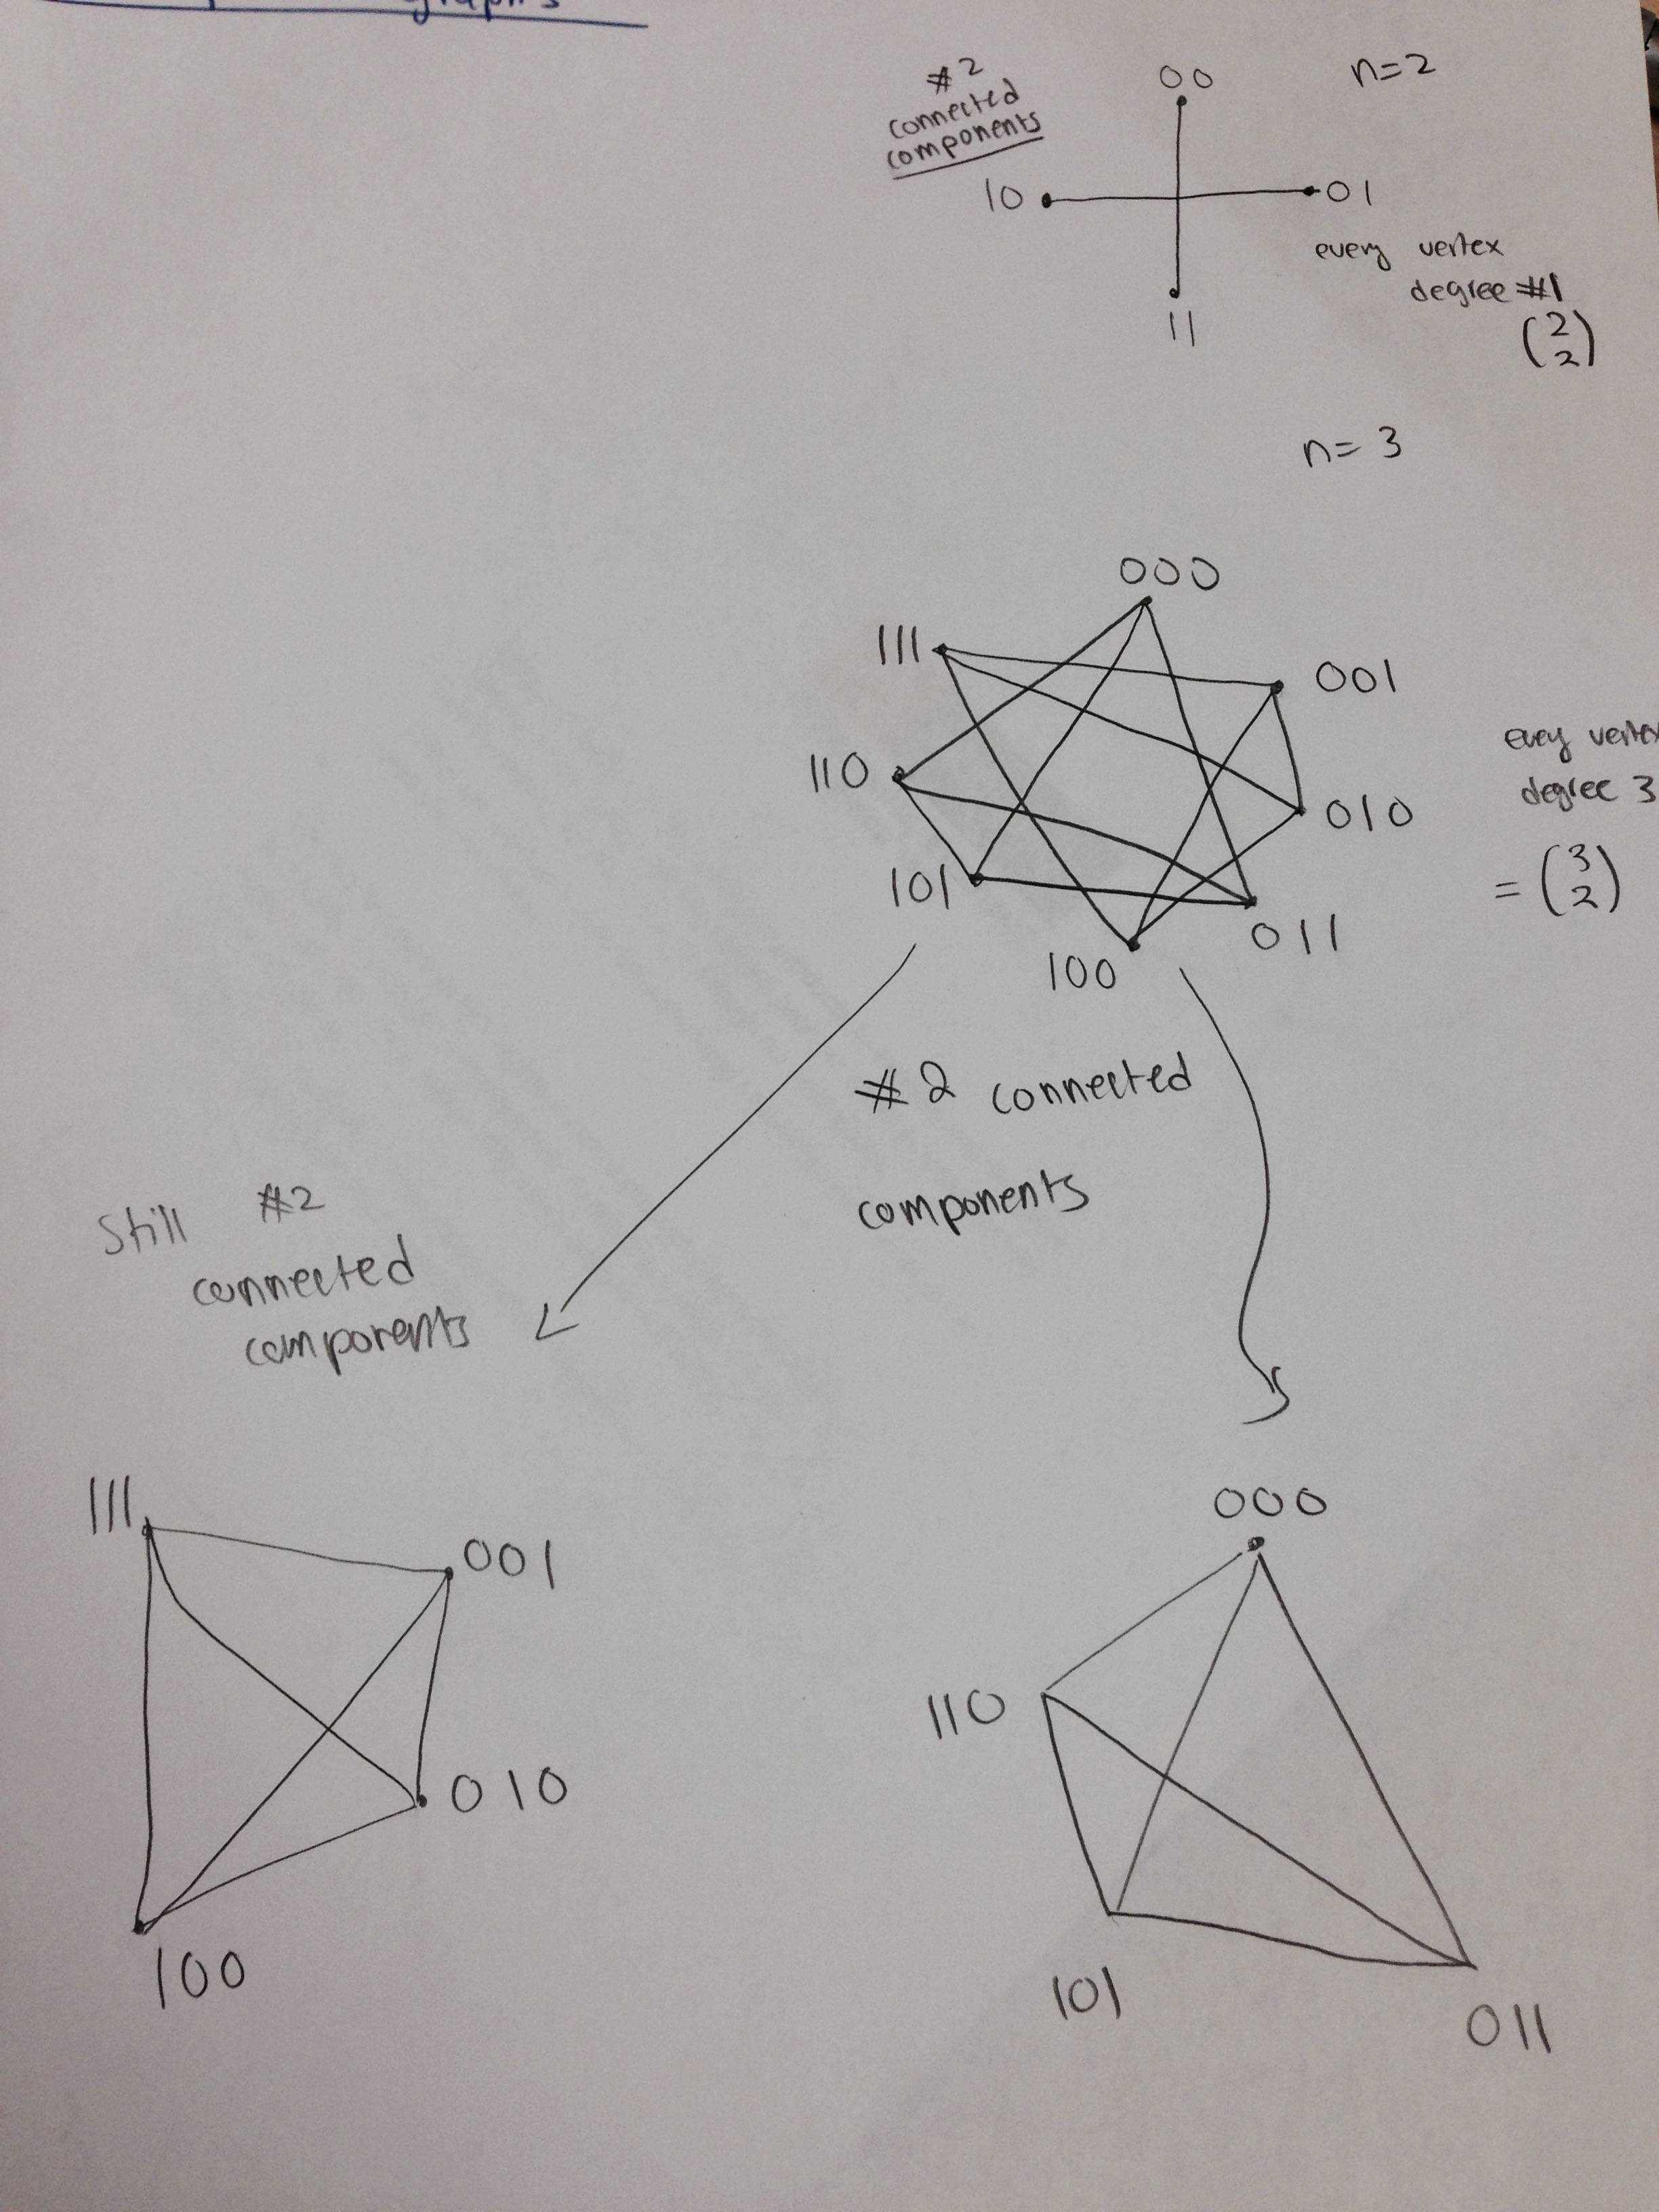 graphs
#2
connected
components
00
n=2
10
01
every vertex
degree #1
(2
2)
11
n= 3
000
111
001
every vertex
degree 3
110
010
= (3
2)
101
011
100
#2 connected
components
Still #2
connected
components
111
001
010
100
000
110
101
011